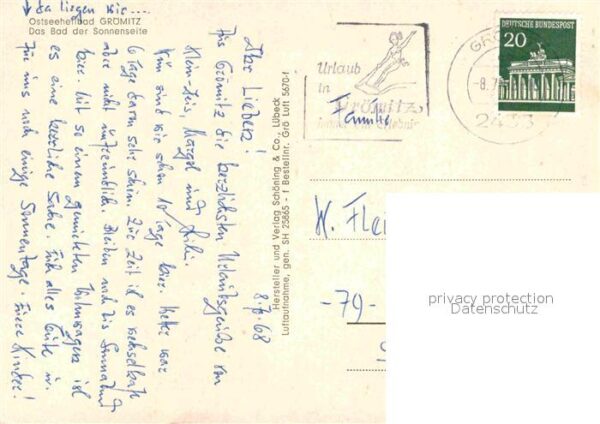 ↓ da liegen wir....
Ostseeheilbad GRÖMITZ
Das Bad der Sonnenseite
8.7.68
Ihr Lieben!
Aus Grömitz die herzlichsten Urlaubsgrüße von
Klein-Iris, Margot und
Nun sind wir schon 10 Tage hier. Hatte war
6 Tage davon sehr schön. Zur Zeit ist es wechselhaft
aber nicht unfreundlich. Bleiben noch bis Sonnabend
hier. Mit so einem gemieteten Wohnwagen ist
es eine herrliche Sache. Euch alles Gute u.
für uns noch einige Sonnentage. Eure Kinder!
Hersteller und Verlag Schöning & Co., Lübeck
Luftaufnahme, gen. SH 25865 - 1 Bestellnr. Grö Luft 5670-f
Urlaub
in
Grömitz,
immer ein Erlebnis
DEUTSCHE BUNDESPOST
20
GRÖ
-8.7
2433
Familie
W. Flei
-79-
privacy protection
Datenschutz